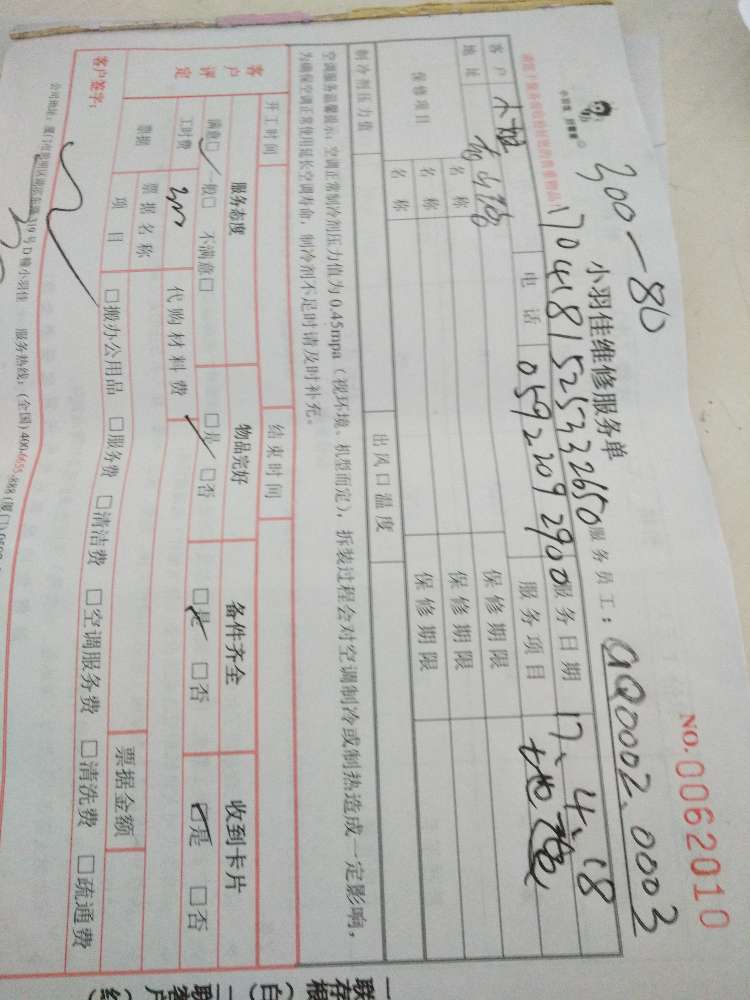 300-80
NO.0062010
小羽佳 好管家
小羽佳维修服务单
1704181525332650
服务员工：GQ0002.0003
请您于服务前收捡好您的贵重物品！
客户 电话 0592 2092900 服务日期 17.4.18
地址 服务项目
保修项目 名称 保修期限
名称 保修期限
名称 保修期限
制冷剂压力值 出风口温度
空调服务温馨提示：空调正常制冷剂压力值为0.45mpa（视环境、机型而定），拆装过程会对空调制冷或制热造成一定影响，
为确保空调正常使用延长空调寿命，制冷剂不足时请及时补充。
开工时间 结束时间
客户评定 服务态度 物品完好 备件齐全 收到卡片
满意□ 一般□ 不满意□ □是 □否 □是 □否 □是 □否
工时费 200 代购材料费
票据 票据名称 票据金额
项目 □搬办公用品 □服务费 □清洁费 □空调服务费 □清洗费 □疏通费
客户签字：
公司地址：厦门市 19号D幢小羽佳 服务热线：(全国)400-6655-888(厦门)